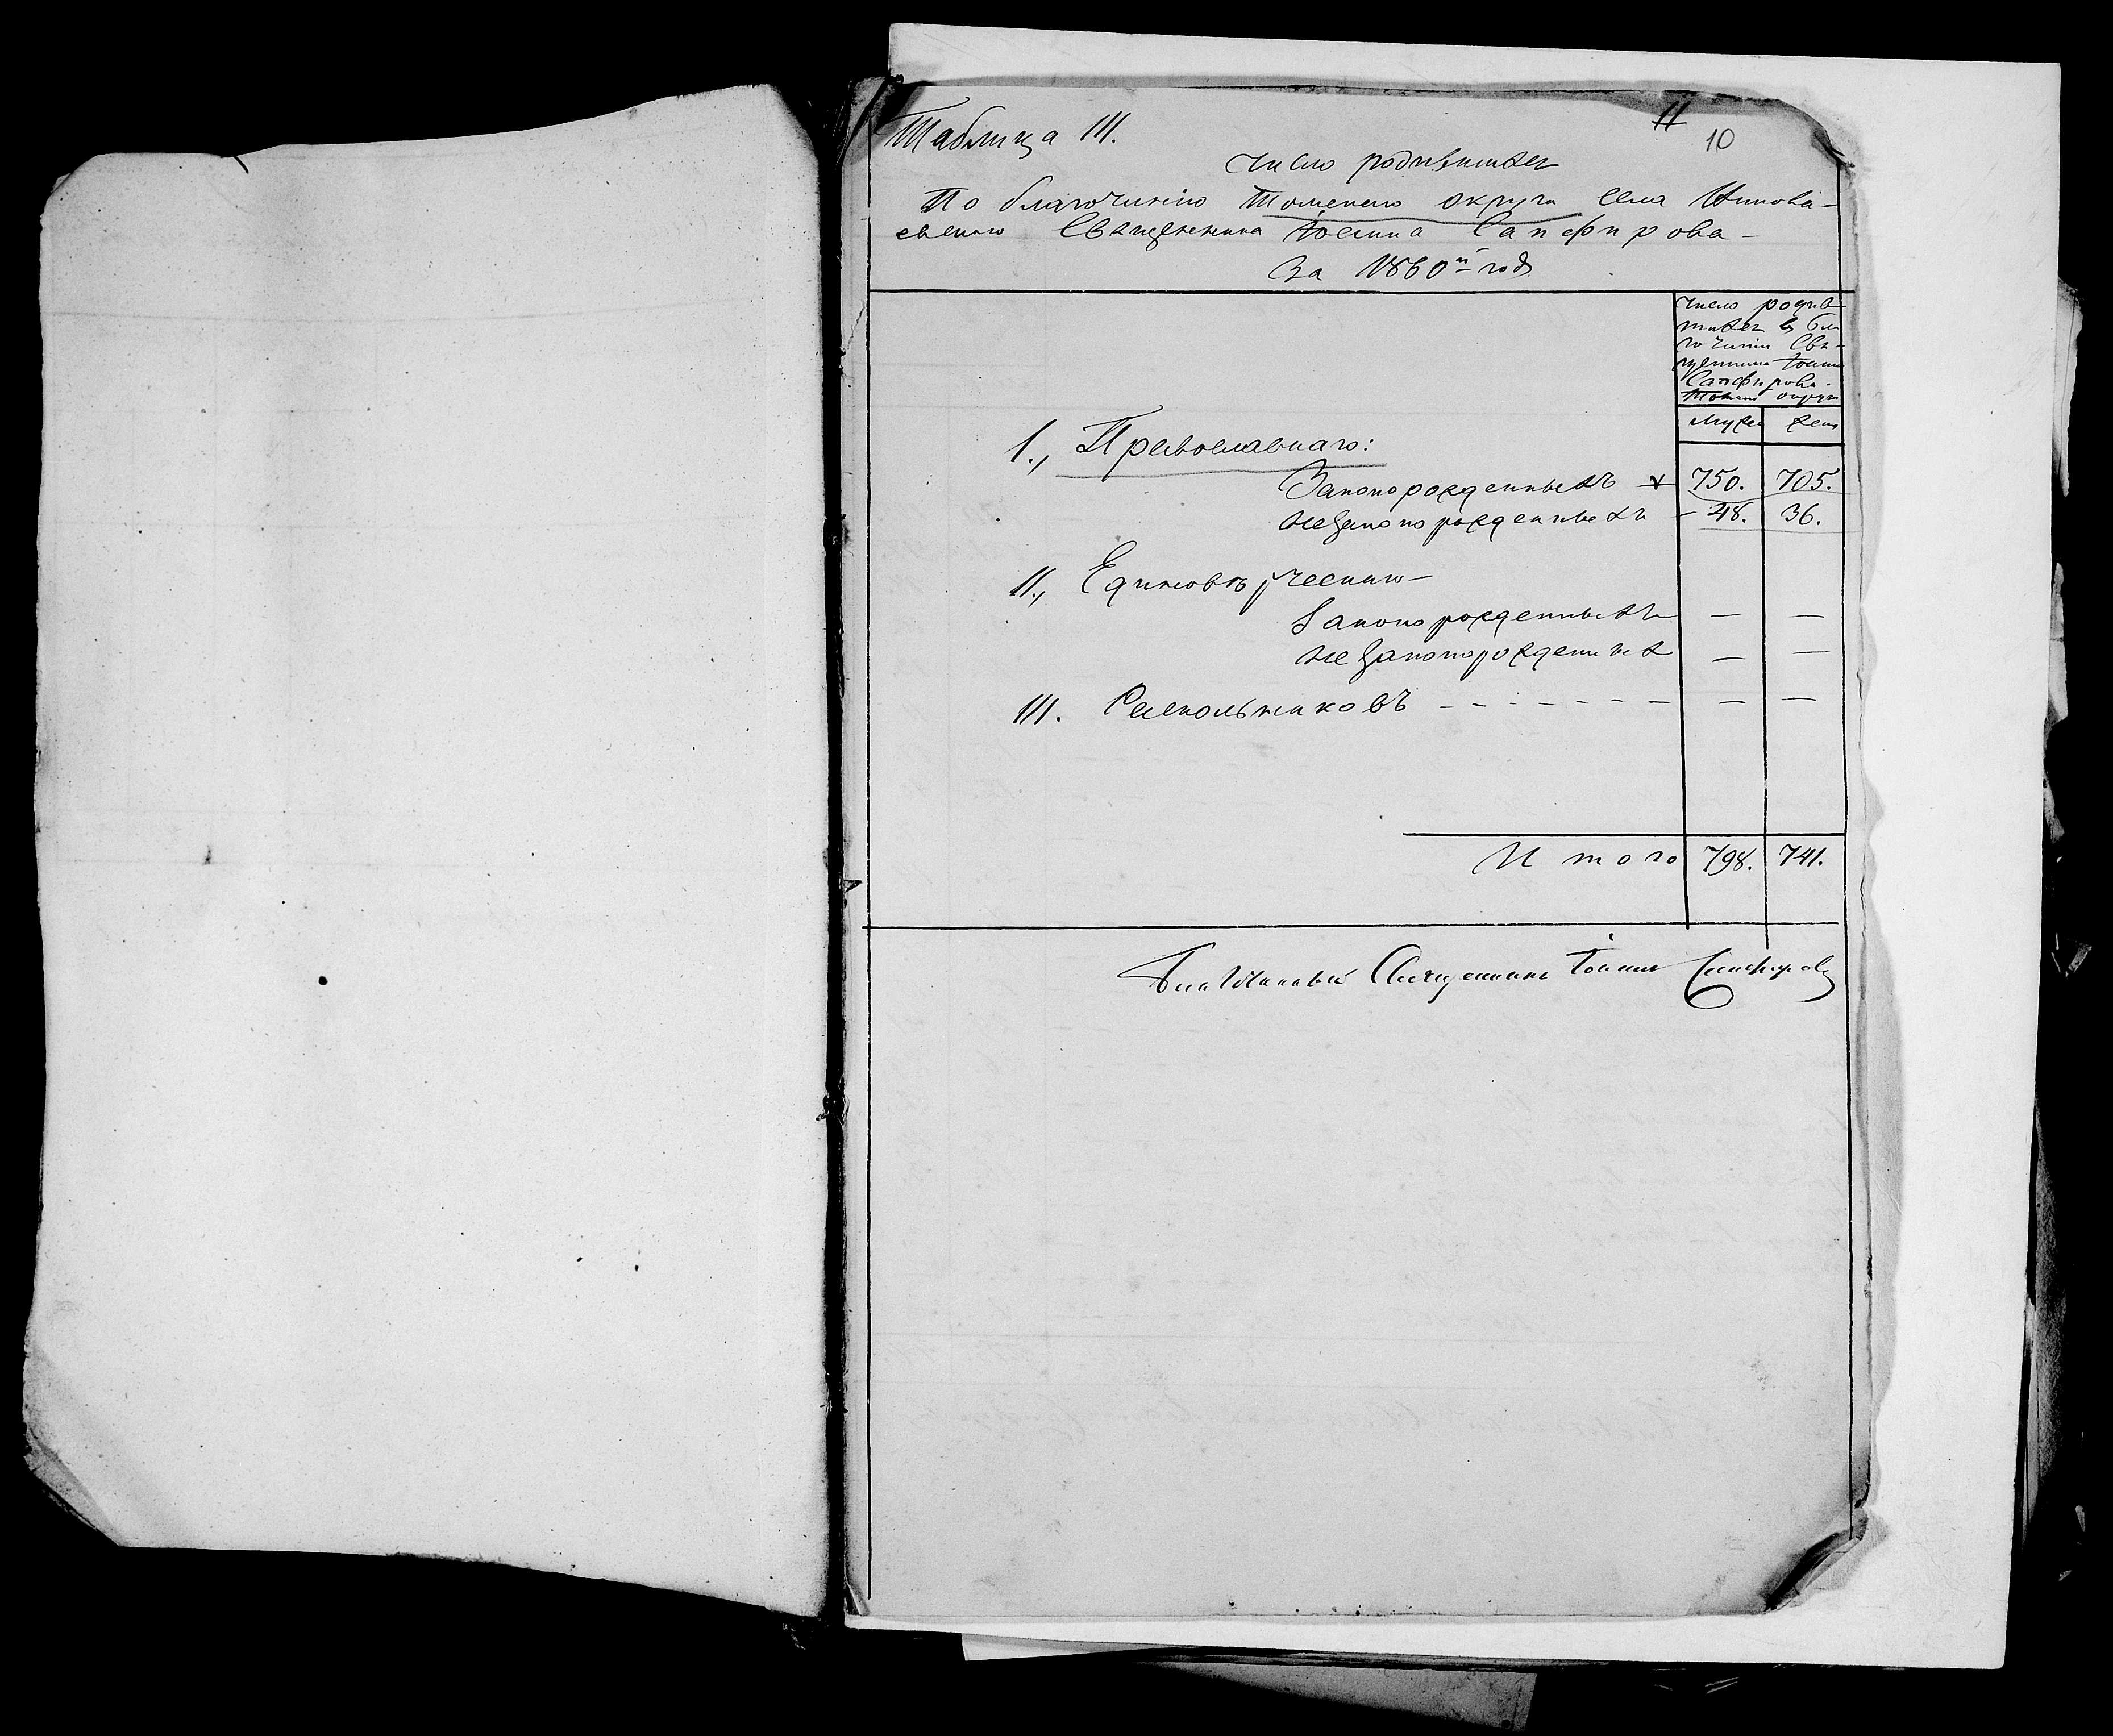 11
10
Таблица III.
Число родившихся
По благочинію Томскаго округа села
Священника Іоанна Сапфирова –
За 1860й годъ
Число родив-
шихся въ бла
гочиніи Свя-
щенника Іоанна
Сапфирова.
Томскаго округа
Муже Жен
1., Православнаго:
Законорожденныхъ 750. 705.
Незаконорожденныхъ – 48. 36.
II., Единовѣрческаго –
Законорожденныхъ — —
Незаконорожденныхъ — —
III. Раскольниковъ - - - - - - - — —
Итого 798. 741.
Благочинный Священникъ Іоаннъ Сапфировъ